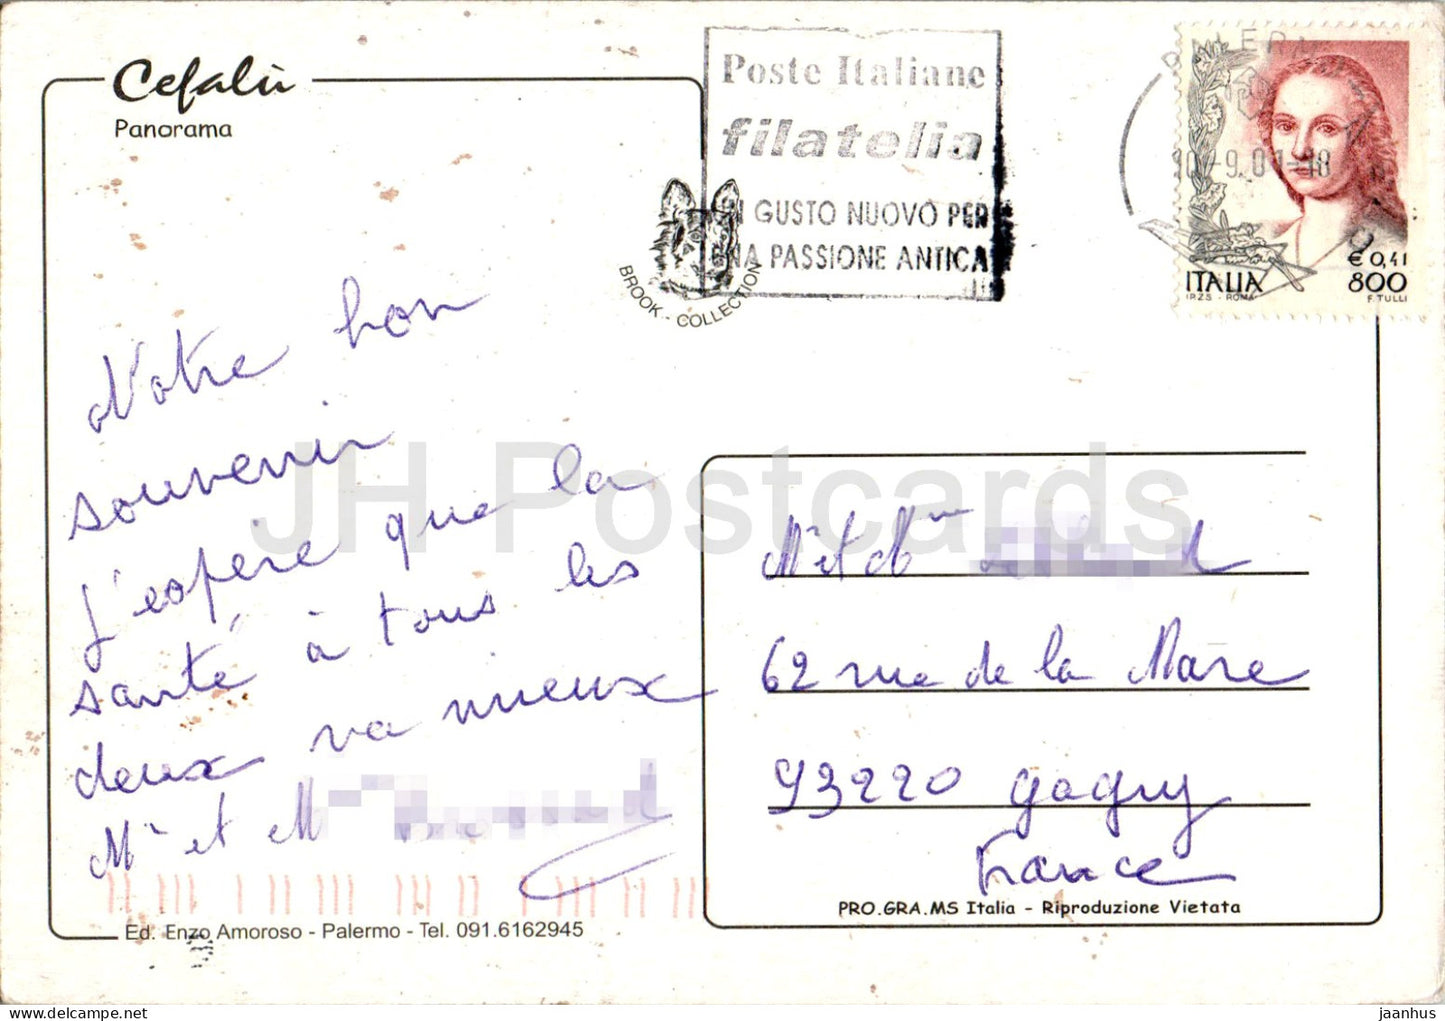 Cefalù
Panorama
Poste Italiane
filatelia
GUSTO NUOVO PER
NA PASSIONE ANTICA
BROOK - COLLECTION
10-9.01-18
€ 0,41
ITALIA 800
I.P.Z.S. - ROMA F. TULLI
Notre bon
souvenir
j'espère que la
santé à tous les
deux va mieux
Mr et M
Mr et Mme
62 rue de la Mare
93220 gagny
France
JH Postcards
PRO.GRA.MS Italia - Riproduzione Vietata
Ed. Enzo Amoroso - Palermo - Tel. 091.6162945
jaanhus © delcampe.net